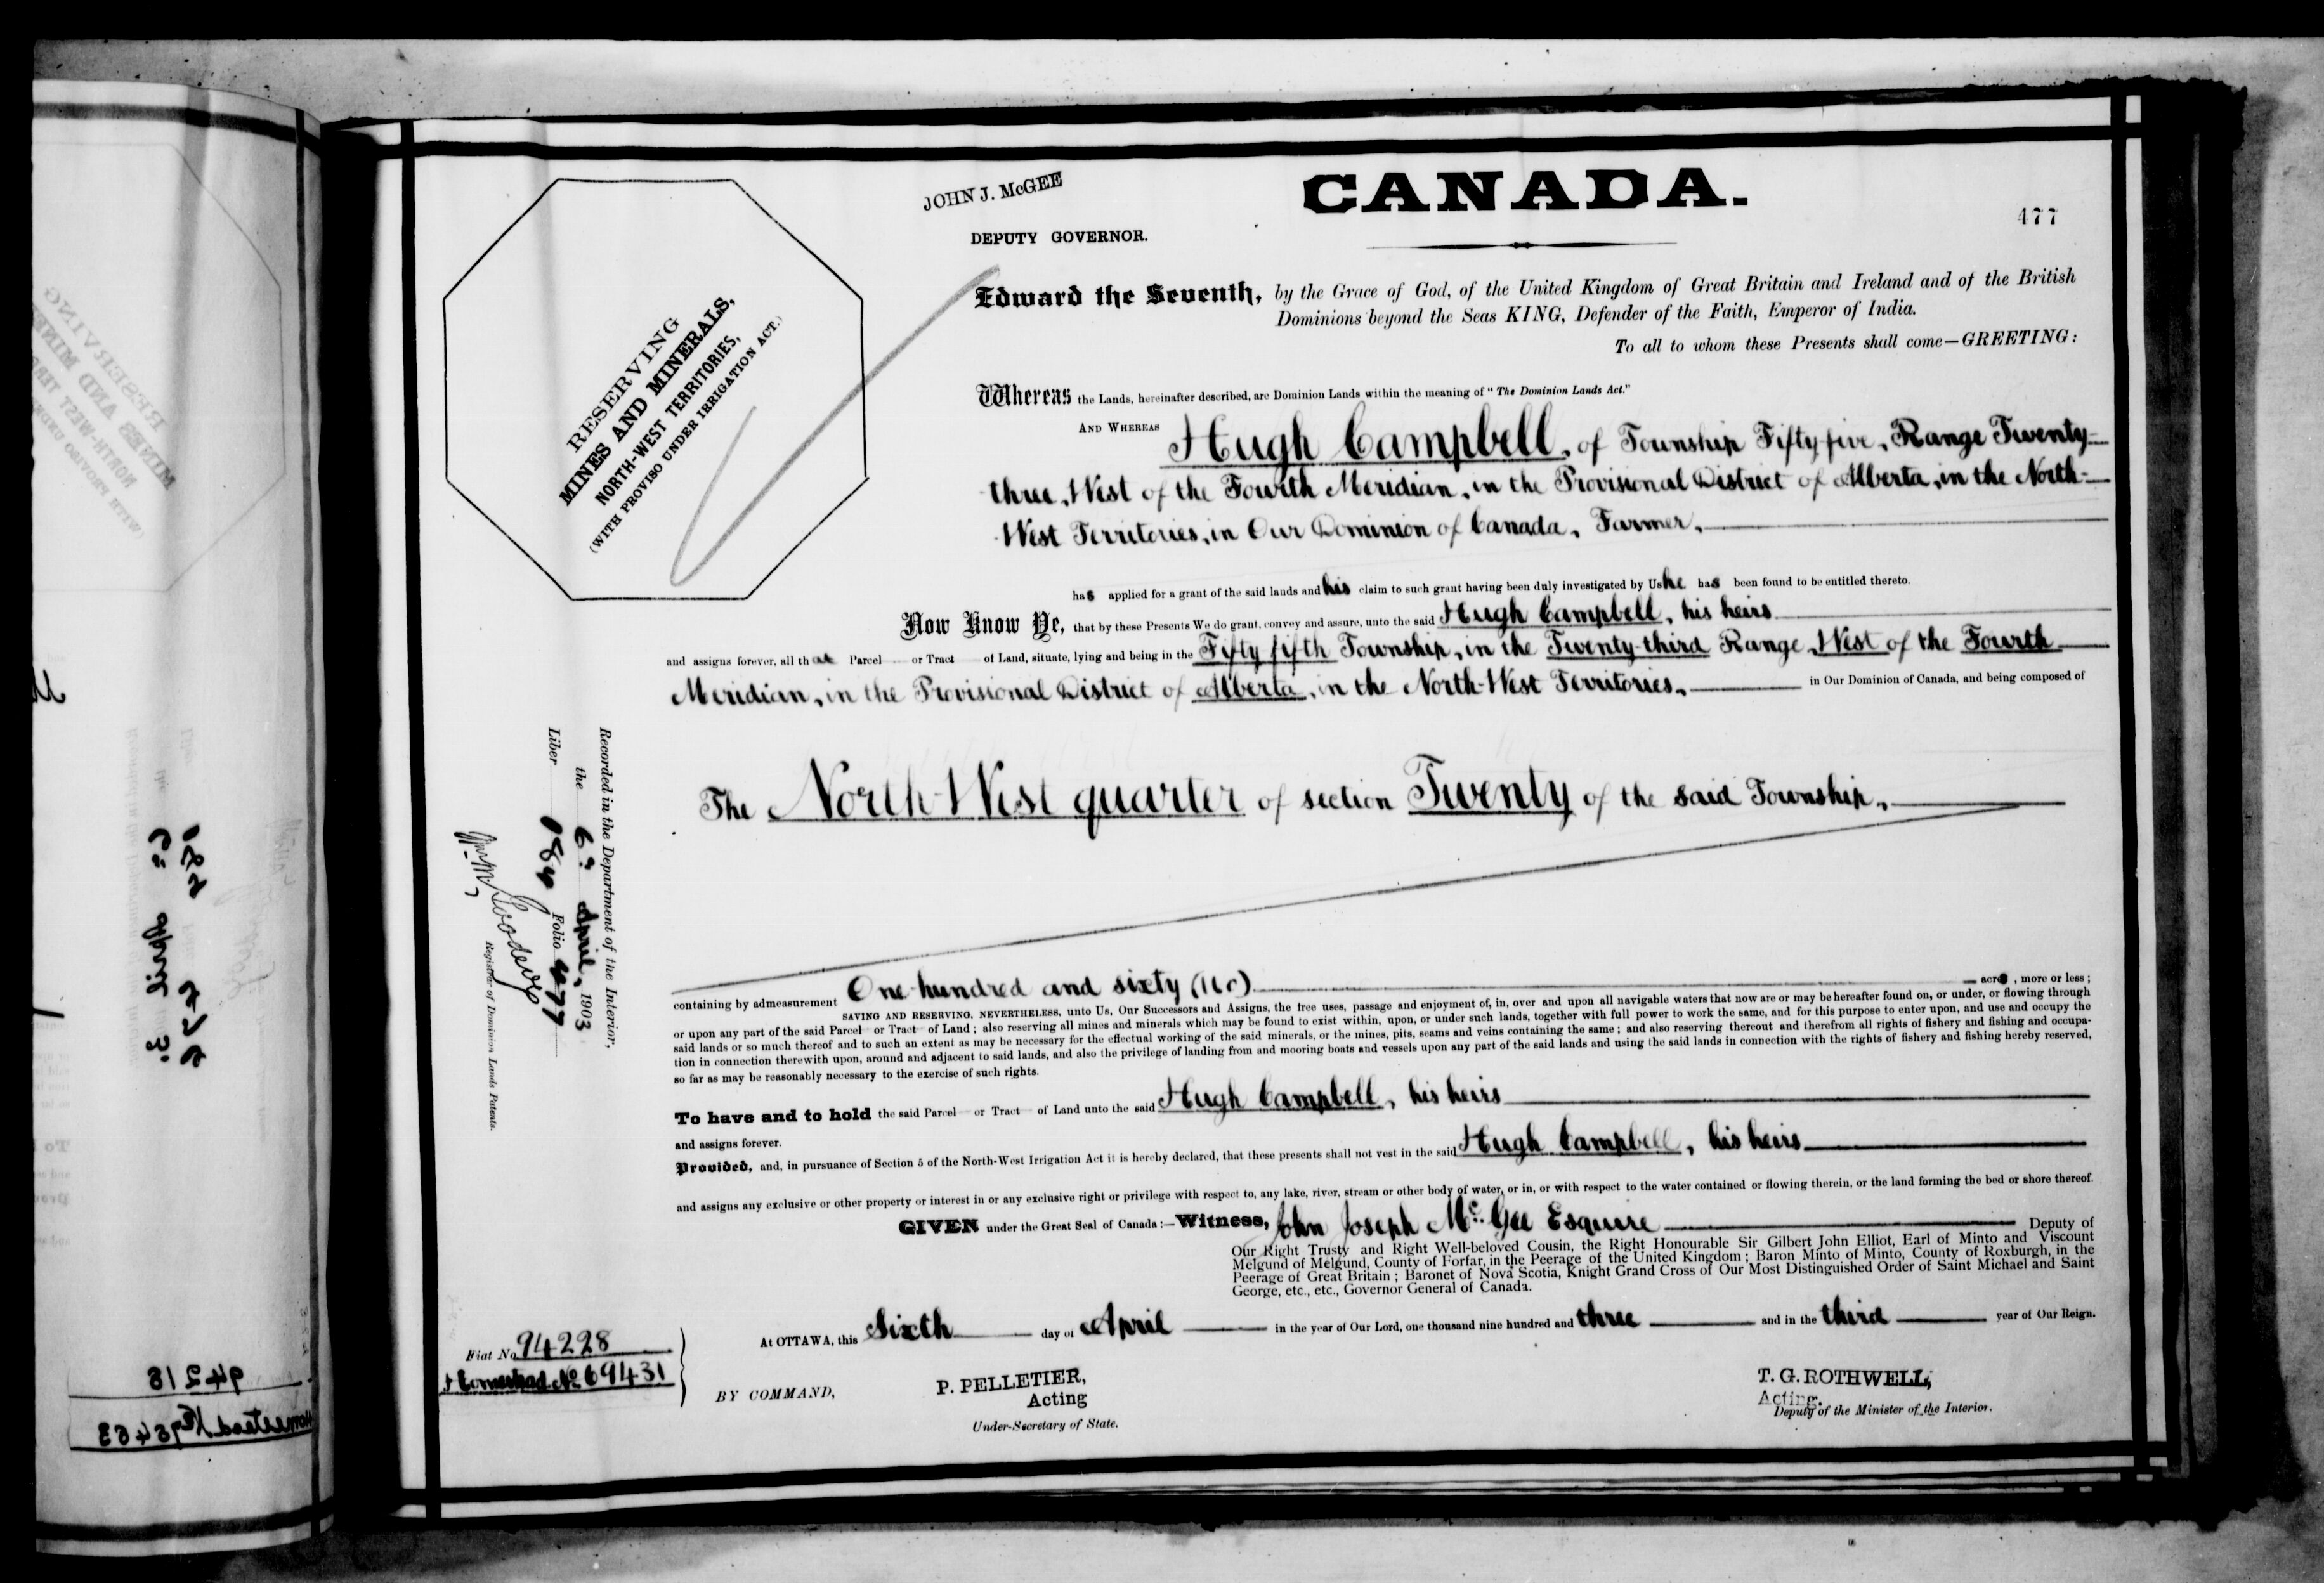 JOHN J. McGEE
DEPUTY GOVERNOR.
CANADA.
477
RESERVING
MINES AND MINERALS,
NORTH-WEST TERRITORIES,
(WITH PROVISO UNDER IRRIGATION ACT.)
Edward the Seventh, by the Grace of God, of the United Kingdom of Great Britain and Ireland and of the British
Dominions beyond the Seas KING, Defender of the Faith, Emperor of India.
To all to whom these Presents shall come—GREETING:
Whereas the Lands, hereinafter described, are Dominion Lands within the meaning of "The Dominion Lands Act."
AND WHEREAS Hugh Campbell, of Township Fifty five, Range Twenty-
three, West of the Fourth Meridian, in the Provisional District of Alberta, in the North-
West Territories, in Our Dominion of Canada, Farmer,
has applied for a grant of the said lands and his claim to such grant having been duly investigated by Us he has been found to be entitled thereto.
Now Know Ye, that by these Presents We do grant, convey and assure, unto the said Hugh Campbell, his heirs
and assigns forever, all that Parcel or Tract of Land, situate, lying and being in the Fifty fifth Township, in the Twenty-third Range, West of the Fourth
Meridian, in the Provisional District of Alberta, in the North-West Territories, in Our Dominion of Canada, and being composed of
The North-West quarter of section Twenty of the said Township,
containing by admeasurement One hundred and sixty (160) acres, more or less;
SAVING AND RESERVING, NEVERTHELESS, unto Us, Our Successors and Assigns, the free uses, passage and enjoyment of, in, over and upon all navigable waters that now are or may be hereafter found on, or under, or flowing through
or upon any part of the said Parcel or Tract of Land; also reserving all mines and minerals which may be found to exist within, upon, or under such lands, together with full power to work the same, and for this purpose to enter upon, and use and occupy the
said lands or so much thereof and to such an extent as may be necessary for the effectual working of the said minerals, or the mines, pits, seams and veins containing the same; and also reserving thereout and therefrom all rights of fishery and fishing and occupa-
tion in connection therewith upon, around and adjacent to said lands, and also the privilege of landing from and mooring boats and vessels upon any part of the said lands and using the said lands in connection with the rights of fishery and fishing hereby reserved,
so far as may be reasonably necessary to the exercise of such rights.
To have and to hold the said Parcel or Tract of Land unto the said Hugh Campbell, his heirs
and assigns forever.
Provided, and, in pursuance of Section 5 of the North-West Irrigation Act it is hereby declared, that these presents shall not vest in the said Hugh Campbell, his heirs
and assigns any exclusive or other property or interest in or any exclusive right or privilege with respect to, any lake, river, stream or other body of water, or in, or with respect to the water contained or flowing therein, or the land forming the bed or shore thereof.
GIVEN under the Great Seal of Canada:—Witness, John Joseph McGee Esquire Deputy of
Our Right Trusty and Right Well-beloved Cousin, the Right Honourable Sir Gilbert John Elliot, Earl of Minto and Viscount
Melgund of Melgund, County of Forfar, in the Peerage of the United Kingdom; Baron Minto of Minto, County of Roxburgh, in the
Peerage of Great Britain; Baronet of Nova Scotia, Knight Grand Cross of Our Most Distinguished Order of Saint Michael and Saint
George, etc., etc., Governor General of Canada.
At OTTAWA, this Sixth day of April in the year of Our Lord, one thousand nine hundred and three and in the third year of Our Reign.
Fiat No. 94228
Homestead No 69431
BY COMMAND,
P. PELLETIER,
Acting
Under-Secretary of State.
T. G. ROTHWELL,
Acting.
Deputy of the Minister of the Interior.
Recorded in the Department of the Interior,
the 6th April, 1903
Liber Folio 477
Registrar of Dominion Lands Patents.
94218
Homestead No 95463